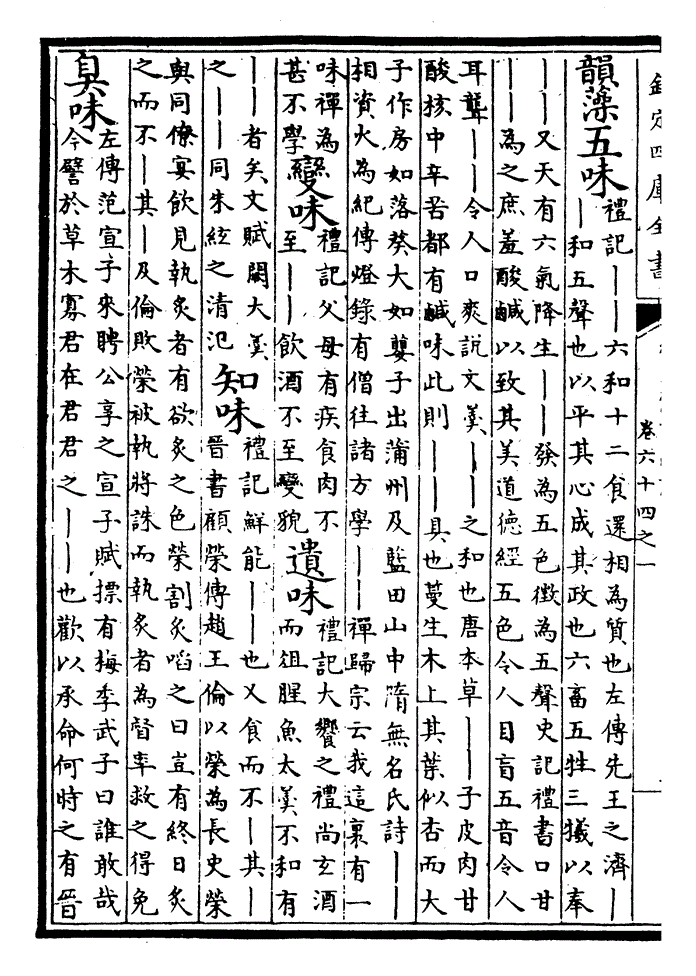 欽定四庫全書
卷六十四之一
韻藻五味禮記丨丨六和十二食還相為質也左傳先王之濟丨
丨和五聲也以平其心成其政也六畜五牲三犧以奉
丨丨又天有六氣降生丨丨發為五色徵為五聲史記禮書口甘
丨丨為之庶羞酸鹹以致其美道德經五色令人目盲五音令人
耳聾丨丨令人口爽說文羮丨丨之和也唐本草丨丨子皮肉甘
酸核中辛苦都有鹹味此則丨丨具也蔓生木上其葉似杏而大
子作房如落葵大如蘡子出蒲州及藍田山中隋無名氏詩丨丨
相資火為紀傳燈錄有僧往諸方學丨丨禪歸宗云我這裏有一
味禪為
甚不學
變味禮記父母有疾食肉不
至丨丨飲酒不至變貌
遺味禮記大饗之禮尚玄酒
而俎腥魚太羮不和有
丨丨者矣文賦闕大羮
之丨丨同朱絃之清氾
知味禮記鮮能丨丨也又食而不丨其丨
晉書顧榮傳趙王倫以榮為長史榮
與同僚宴飲見執炙者有欲炙之色榮割炙啗之曰豈有終日炙
之而不丨其丨及倫敗榮被執將誅而執炙者為督率救之得免
臭味左傳范宣子來聘公享之宣子賦摽有梅季武子曰誰敢哉
今譬於草木寡君在君君之丨丨也歡以承命何時之有晉